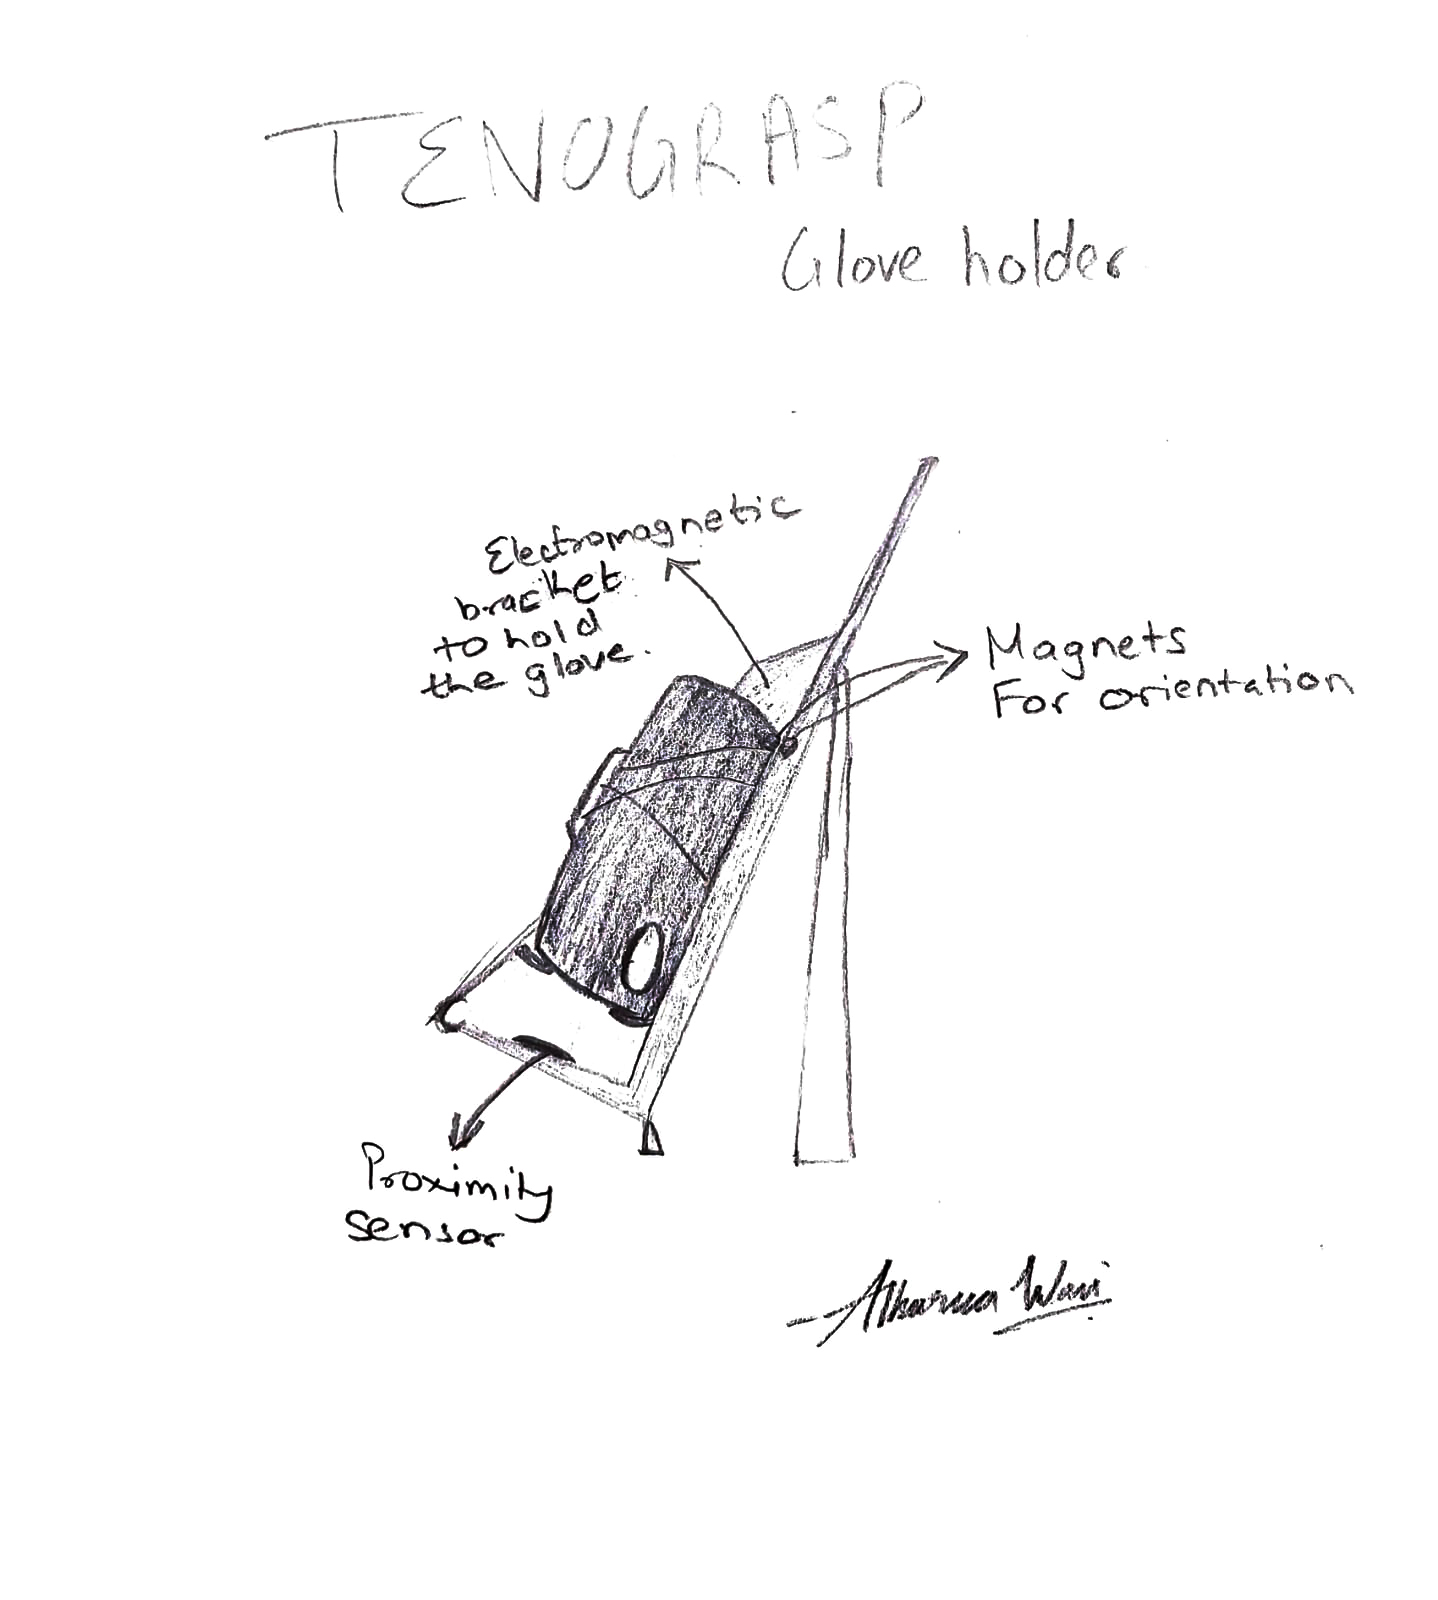 TENOGRASP
Glove holder
Electromagnetic
bracket
to hold
the glove.
Magnets
For orientation
Proximity
sensor
- Atharva Wani